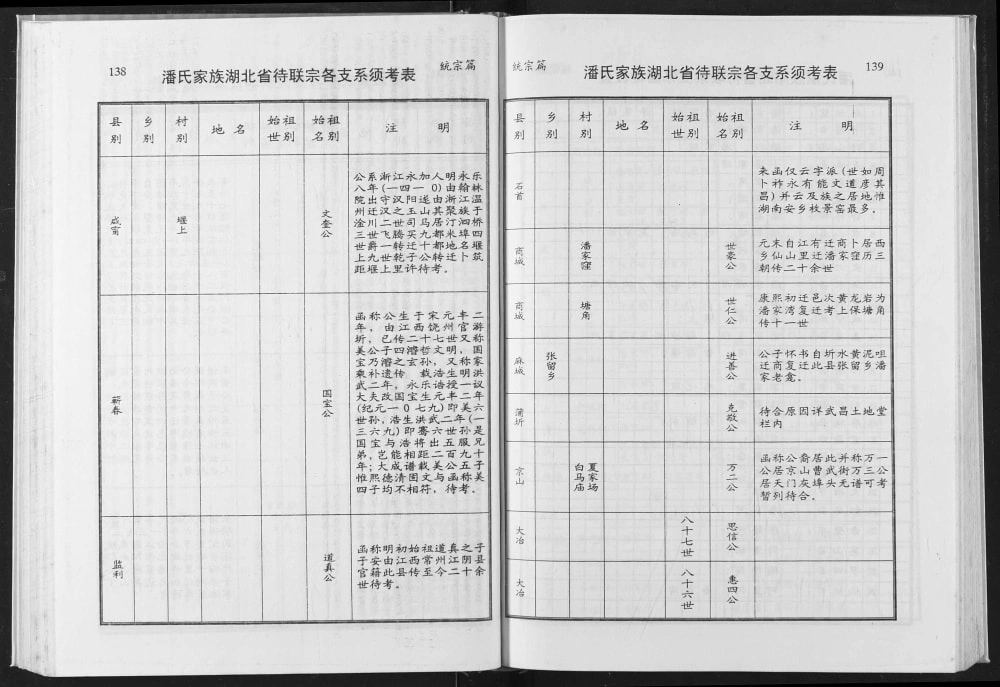 138
潘氏家族湖北省待联宗各支系须考表
统宗篇
县别 乡别 村别 地名 始祖世别 始祖名别 注明
咸甯 堰上 文奎公
公系浙江永加人明永乐
八年(一四一0)由翰林
院出守汉阳遂由浙江温
州迁汉之玉山其聚族于
淦川二世司马居汀泗桥
三世飞腾买九都米埠四
世爵一转迁十都地名堰
上九世乾子公转迁卜筑
距堰上里许待考。
蕲春 国宝公
函称公生于宋元丰二
年，由江西饶州官游
圻，已传二十七世又称
美公子四濬哲文明，国
宝乃濬之玄孙，又称家
乘朴遗传 载浩生明洪
武二年，永乐诰授一议
大夫改国宝生元丰二年
(纪元一0七九)即美六
世孙，浩生洪武二年(一
三六九)即骞六世孙是
国宝与浩将出五服兄
弟，岂能相距二百九十
年；大成谱载美公五子
惟熙德清图文与函称美
四子均不相符，待考。
监利 道真公
函称明初始祖道真之子
子安由江西常州江阴县
官籍此县传至今二十余
世待考。
统宗篇
潘氏家族湖北省待联宗各支系须考表
139
县别 乡别 村别 地名 始祖世别 始祖名别 注明
石首
来函仅云字派(世如周
卜祚永有能文道彦其
昌)并云及族之居地惟
湖南安乡枝景窑最多。
商城 潘家窪 世豪公
元末自江有迁商卜居西
乡仙山里迁潘家窪历三
朝传二十余世
商城 塘角 世仁公
康熙初迁邑次黄龙岩为
潘家湾复迁考上保塘角
传十一世
麻城 张留乡 进善公
公子怀书自圻水黄泥咀
迁商复迁此县张留乡潘
家老龛。
蒲圻 克敬公
待合原因详武昌土地堂
栏内
京山 夏家场白马庙 万二公
函称公裔居此并称万一
公居京山曹武街万三公
居天门灰埠头无谱可考
暂列待合。
大冶 八十七世 思信公
大冶 八十六世 惠四公